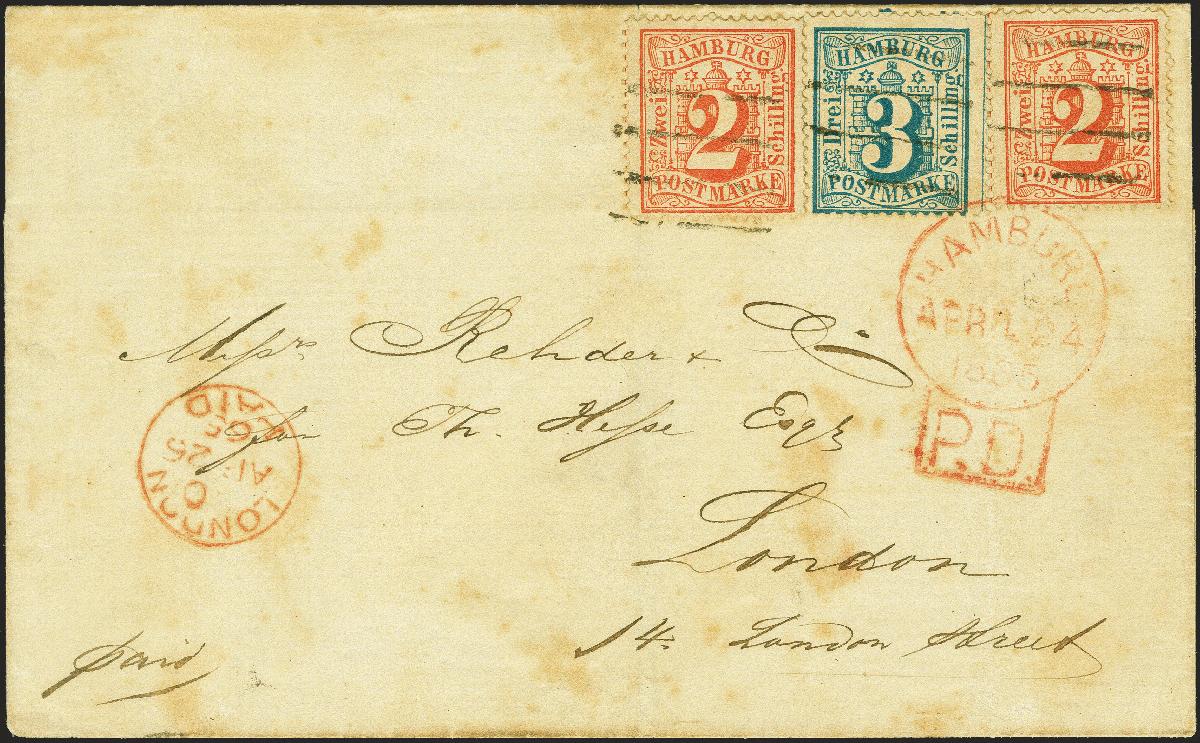 HAMBURG
Zwei 2 Schilling.
POSTMARKE
HAMBURG
Drei 3 Schilling.
POSTMARKE
HAMBURG
Zwei 2 Schilling.
POSTMARKE
HAMBURG
APRIL 24
1865
P.D.
Messrs Rehder & Co
for Th. Hesse Esqr
London
14. London Street
paid
LONDON
O
AP 25
65
PAID